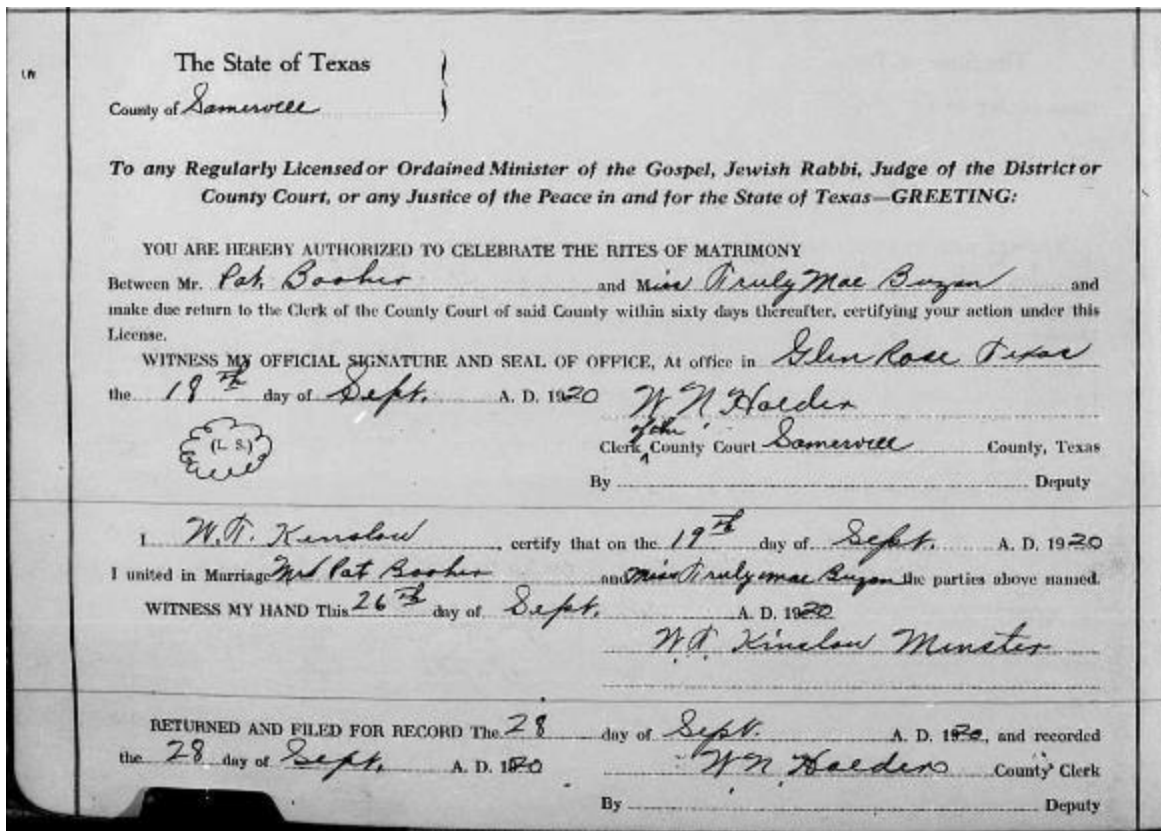 The State of Texas
County of Somervell
To any Regularly Licensed or Ordained Minister of the Gospel, Jewish Rabbi, Judge of the District or
County Court, or any Justice of the Peace in and for the State of Texas—GREETING:
YOU ARE HEREBY AUTHORIZED TO CELEBRATE THE RITES OF MATRIMONY
Between Mr. Pat. Booher and Miss Truly Mae Buzan and
make due return to the Clerk of the County Court of said County within sixty days thereafter, certifying your action under this
License.
WITNESS MY OFFICIAL SIGNATURE AND SEAL OF OFFICE, At office in Glen Rose Texas
the 18th day of Sept. A. D. 1920 W N Holder
(L. S.)
Clerk of the County Court Somervell County, Texas
By Deputy
I W.T. Kinslow, certify that on the 19th day of Sept. A. D. 1920
I united in Marriage Mr Pat Booher and Miss Truly Mae Buzan the parties above named.
WITNESS MY HAND This 26th day of Sept. A. D. 1920
W.T. Kinslow Minster
RETURNED AND FILED FOR RECORD The 28 day of Sept. A. D. 1920, and recorded
the 28 day of Sept. A. D. 1920 W N Holder County Clerk
By Deputy